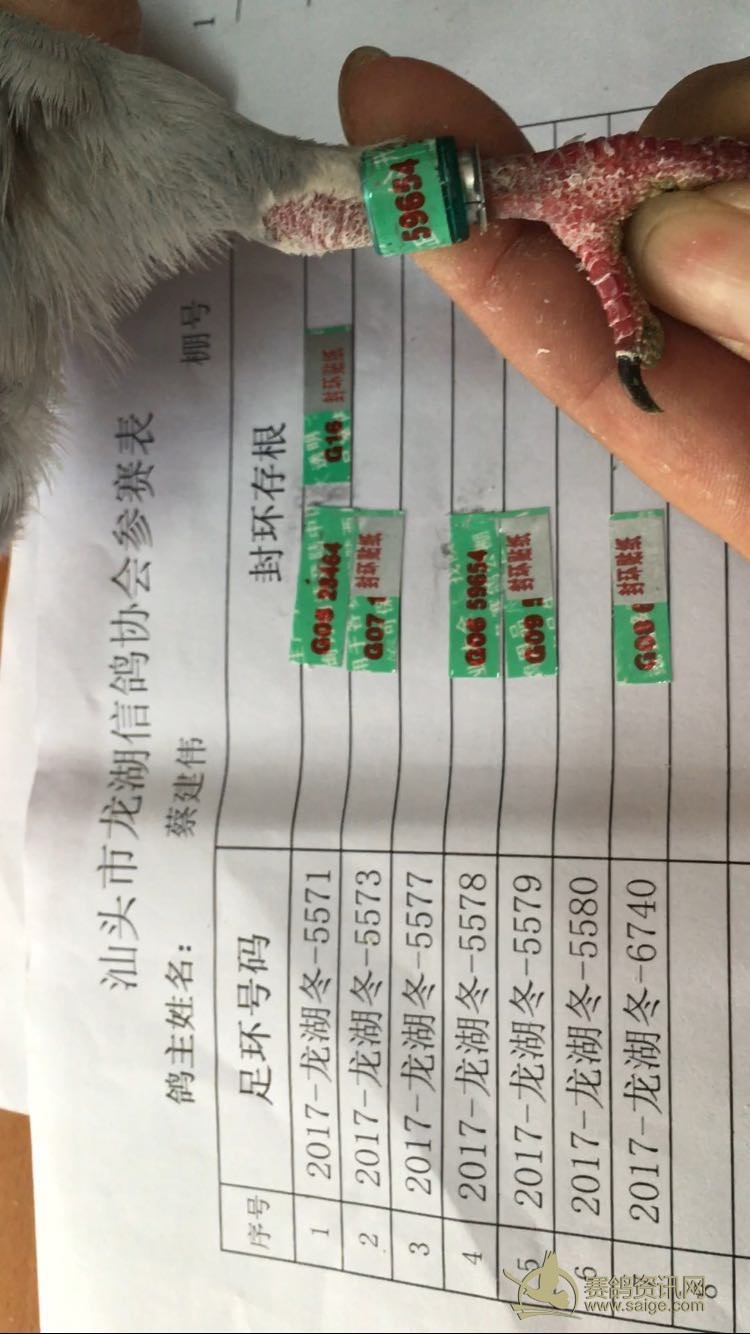 汕头市龙湖信鸽协会参赛表
鸽主姓名： 蔡建伟 棚号
序号 足环号码 封环存根
1 2017-龙湖冬-5571 G09 28464 G16 封环贴纸
2 2017-龙湖冬-5573 G07 封环贴纸
3 2017-龙湖冬-5577
4 2017-龙湖冬-5578 G06 59654
5 2017-龙湖冬-5579 G09 封环贴纸
6 2017-龙湖冬-5580
2017-龙湖冬-6740 G08 封环贴纸
8
59654
1
赛鸽资讯网
www.saige.com